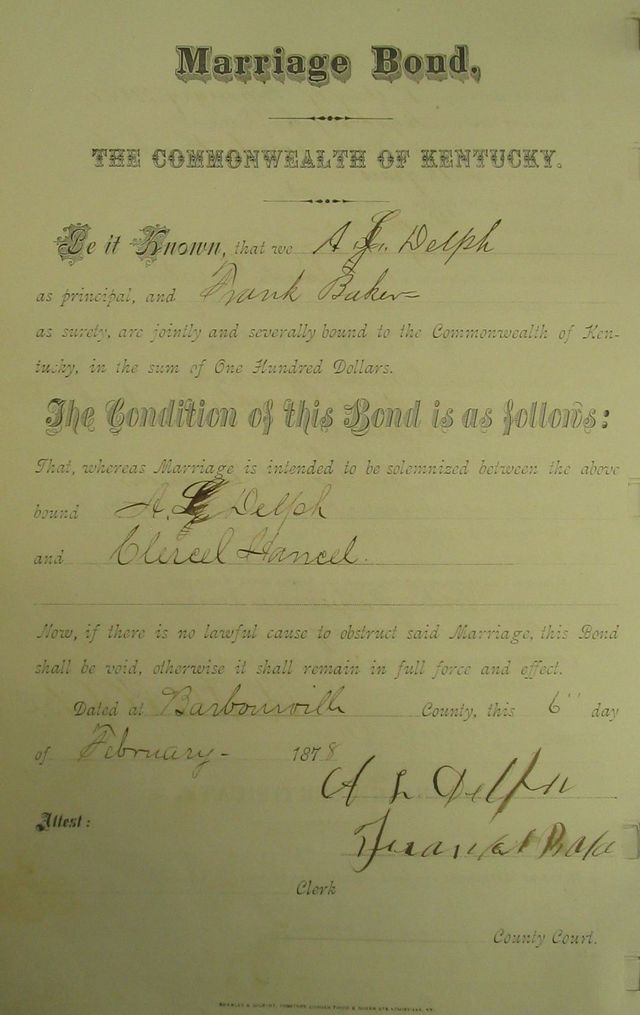 Marriage Bond.
THE COMMONWEALTH OF KENTUCKY.
Be it Known, that we A L Delph
as principal, and Frank Baker
as surety, are jointly and severally bound to the Commonwealth of Ken-
tucky, in the sum of One Hundred Dollars.
The Condition of this Bond is as follows:
That, whereas Marriage is intended to be solemnized between the above
bound A. L Delph
and
Now, if there is no lawful cause to obstruct said Marriage, this Bond
shall be void, otherwise it shall remain in full force and effect.
Dated at Barbourville County, this 6" day
of February 1878
A L Delph
Attest:
Clerk
County Court.